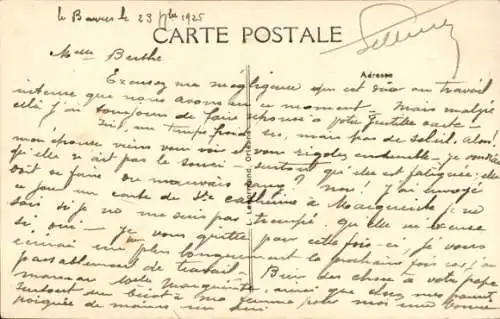 le 23 1925
CARTE POSTALE
Adresse
Melle Berthe
Excusez ma negligence qui est due au travail
intense que nous avons en ce moment - Mais malgré
celà j'ai toujours de faire réponse à votre gentille carte -
Ici, un temps froid sec, mais pas de soleil. Alors!
mon épouse viens vous voir et vous rigolez ensemble - je voudrais
qu'elle n'ait pas le souci - surtout qu'elle est fatiguée; elle
doit se faire du mauvais sang? non! J'ai envoyé
ce jour une carte de Ste Catherine à Marguerite; ne
sais si je ne me suis pas trompé, qu'elle m'excuse
si, oui - Je vous quitte pour cette fois-ci, je vous
écrirai un plus longuement la prochaine fois car j'ai
passablement de travail - Bien des choses à votre papa
maman Marguerite, ainsi que chez mes parents,
surtout un bécot à ma femme pour moi une bonne
poignée de mains